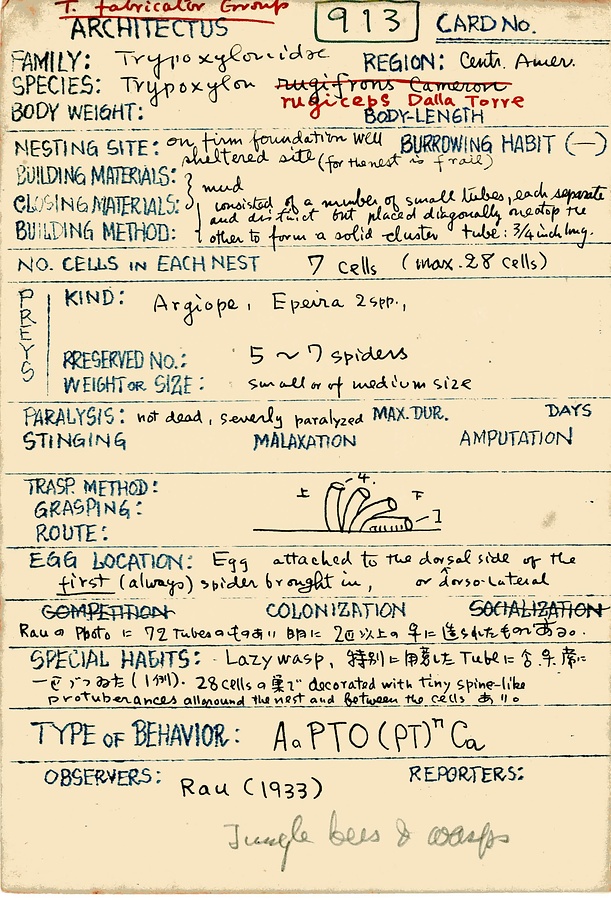 T. fabricator Group
ARCHITECTUS 913 CARD NO.
FAMILY: Trypoxylonidae REGION: Centr. Amer.
SPECIES: Trypoxylon rugifrons Cameron
rugiceps Dalla Torre
BODY WEIGHT: BODY-LENGTH
NESTING SITE: on firm foundation well BURROWING HABIT (—)
sheltered site (for the nest is frail)
BUILDING MATERIALS: } mud
CLOSING MATERIALS: consisted of a number of small tubes, each separate
and distinct but placed diagonally one atop the
BUILDING METHOD: other to form a solid cluster tube: 3/4 inch long.
NO. CELLS IN EACH NEST 7 cells (max. 28 cells)
PREYS
KIND: Argiope, Epeira 2 spp.,
PRESERVED NO.: 5 ~ 7 spiders
WEIGHT OR SIZE: small or of medium size
PARALYSIS: not dead, severly paralyzed MAX. DUR. DAYS
STINGING MALAXATION AMPUTATION
TRASP. METHOD: 4
GRASPING: 上 下
ROUTE: 1
EGG LOCATION: Egg attached to the dorsal side of the
first (always) spider brought in, or dorso-lateral
COMPETITION COLONIZATION SOCIALIZATION
Rau の Photo に 72 Tubes のものあり 明に 2回以上の 早に 造られたものである。
SPECIAL HABITS: Lazy wasp, 特別に用意した Tube に
(1例). 28 cells の巣で decorated with tiny spine-like
protuberances all around the nest and between the cells あり。
TYPE OF BEHAVIOR: AaPTO(PT)ⁿCa
OBSERVERS: Rau (1933) REPORTERS:
Jungle bees & wasps